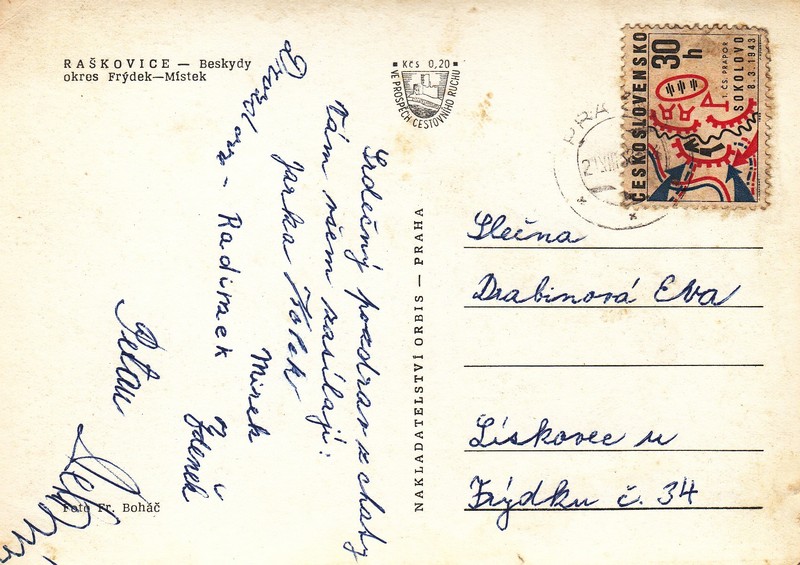 RAŠKOVICE — Beskydy
okres Frýdek—Místek
Kčs 0,20
VE PROSPĚCH CESTOVNÍHO RUCHU
ČESKOSLOVENSKO
30 h
1. ČS. PRAPOR
SOKOLOVO
8. 3. 1943
PRA
Srdečný pozdrav z chaty
Vám všem zasílají:
Jarka
Mirek
Radimek
Zdeněk
NAKLADATELSTVÍ ORBIS — PRAHA
Slečna
Drabinová Eva
Lískovec u
Frýdku č. 34
Foto Fr. Boháč